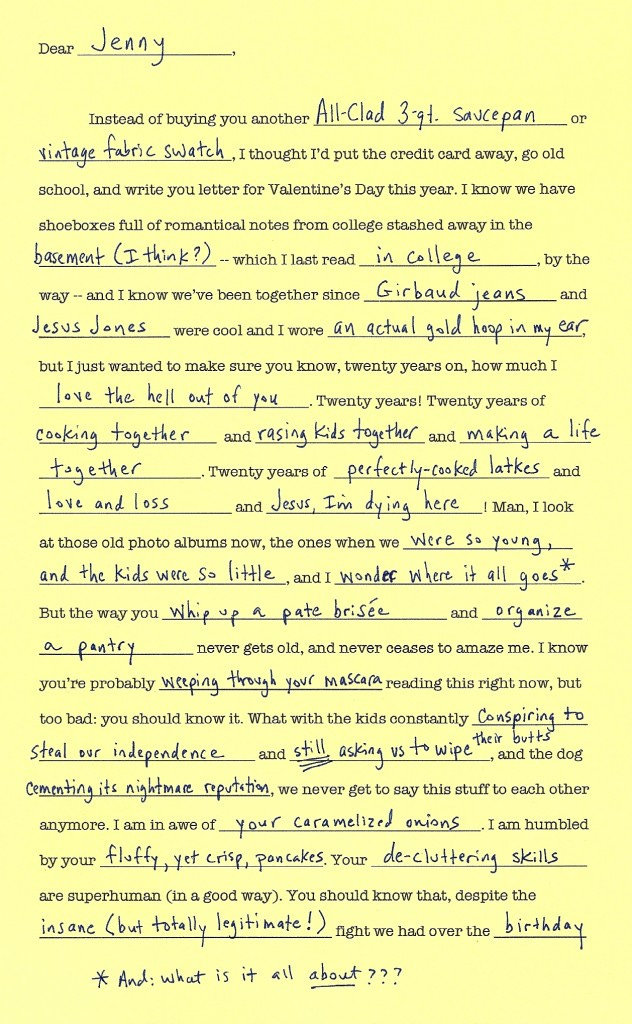 Dear Jenny,
Instead of buying you another All-Clad 3-qt. saucepan or
vintage fabric swatch, I thought I'd put the credit card away, go old
school, and write you letter for Valentine's Day this year. I know we have
shoeboxes full of romantical notes from college stashed away in the
basement (I think?) -- which I last read in college, by the
way -- and I know we've been together since Girbaud jeans and
Jesus Jones were cool and I wore an actual gold hoop in my ear,
but I just wanted to make sure you know, twenty years on, how much I
love the hell out of you. Twenty years! Twenty years of
cooking together and rasing kids together and making a life
together. Twenty years of perfectly-cooked latkes and
love and loss and Jesus, I'm dying here! Man, I look
at those old photo albums now, the ones when we were so young,
and the kids were so little, and I wonder where it all goes*.
But the way you whip up a pate brisée and organize
a pantry never gets old, and never ceases to amaze me. I know
you're probably weeping through your mascara reading this right now, but
too bad: you should know it. What with the kids constantly conspiring to
steal our independence and still asking us to wipe their butts, and the dog
cementing its nightmare reputation, we never get to say this stuff to each other
anymore. I am in awe of your caramelized onions. I am humbled
by your fluffy, yet crisp, pancakes. Your de-cluttering skills
are superhuman (in a good way). You should know that, despite the
insane (but totally legitimate!) fight we had over the birthday
* And: what is it all about???